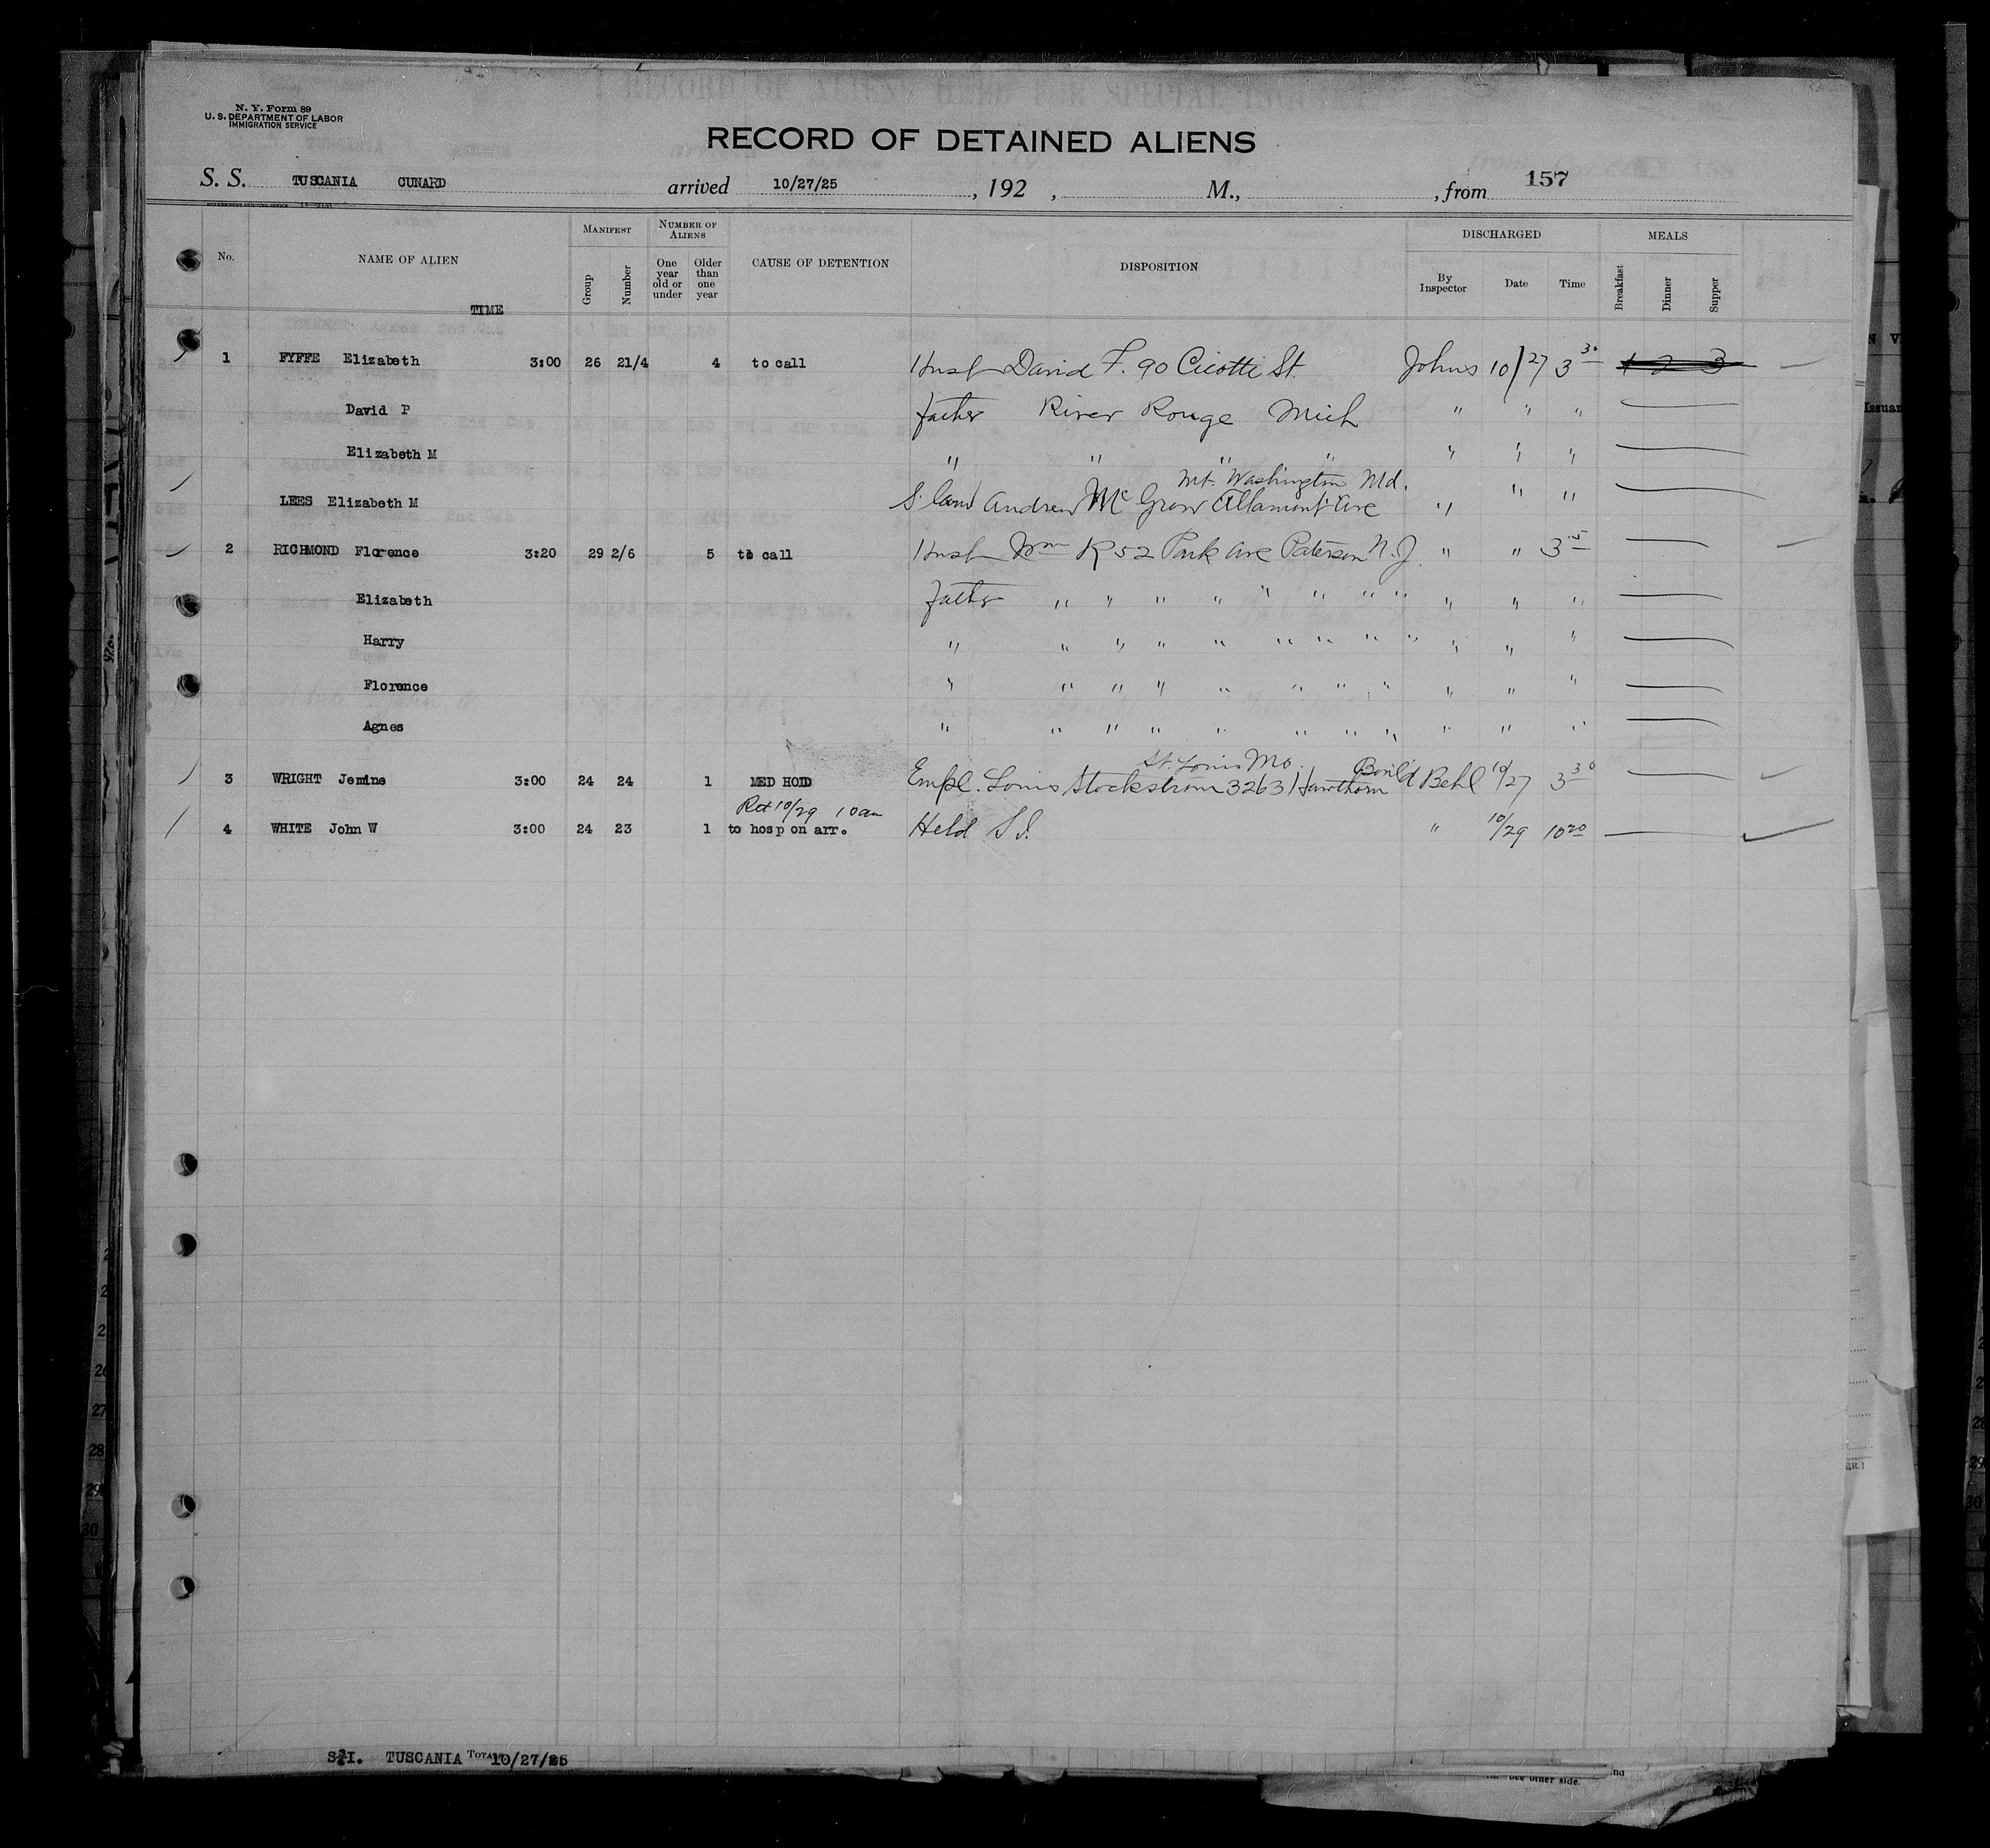 N. Y. Form 89
U. S. DEPARTMENT OF LABOR
IMMIGRATION SERVICE
RECORD OF DETAINED ALIENS
S. S. TUSCANIA CUNARD arrived 10/27/25, 192 , M., , from 157
MANIFEST NUMBER OF ALIENS DISCHARGED MEALS
No. NAME OF ALIEN Group Number One year old or under Older than one year CAUSE OF DETENTION DISPOSITION By Inspector Date Time Breakfast Dinner Supper
TIME
1 FYFFE Elizabeth 3:00 26 21/4 4 to call Husb David F. 90 Cicotte St. Johns 10/27 3 30 1 2 3
David P father River Rouge Mich " " "
Elizabeth M " " " " " " "
Mt. Washington Md.
LEES Elizabeth M Andrew McGrow Altamont Ave " " "
2 RICHMOND Florence 3:20 29 2/6 5 to call Husb Wm R 52 Park Ave Paterson N.J. " " 3 15
Elizabeth Father " " " " " " " " " " "
Harry " " " " " " " " " " " "
Florence " " " " " " " " " " "
Agnes " " " " " " " " " " "
St. Louis Mo.
3 WRIGHT Jemine 3:00 24 24 1 MED HOLD Empl. Louis Stockstrom 3263 Hawthorn Behl 10/27 3 30
Ret 10/29 10 am
4 WHITE John W 3:00 24 23 1 to hosp on arr. Held S I. " 10/29 10 20
S.I. TUSCANIA TOTAL 10/27/25
see other side.